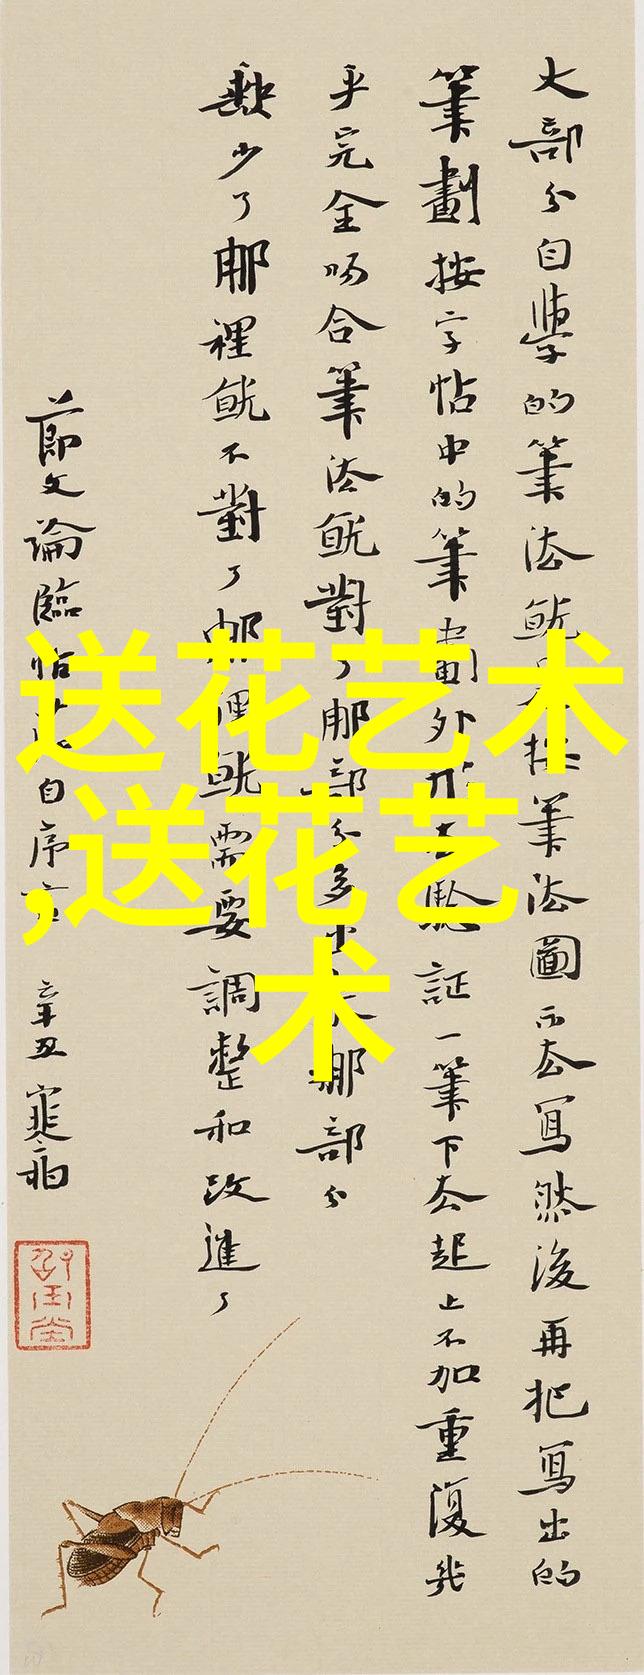 大部分自學的筆法就按筆法圖示去寫然後再把寫出的
筆劃按字帖中的筆劃外形去驗証一筆下去起上不加重復幾
乎完全吻合筆法就對了那部分多出那部分
缺少了那裡就不對了那裡就需要調整和改進了
節文論臨帖自序言 辛丑
送花艺术
,送花艺
术